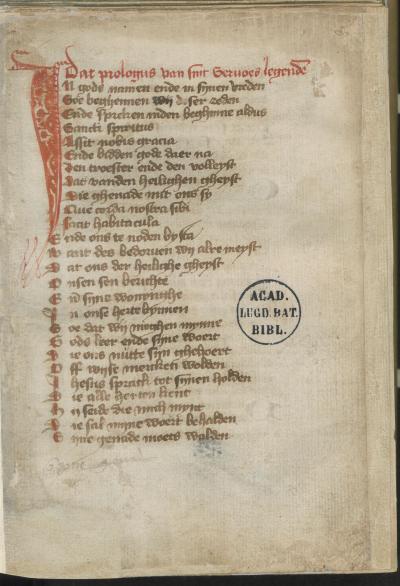 Dat prologus van sint Servoes legende
In gods namen ende in synen vreden
Soe beghynnen wij deser reden
Ende spreken inden beghynne aldus
Sancti spiritus
Assit nobis gracia
Ende bidden gode daer na
Den troester ende den volleyst
Dat vanden heilighen gheyst
Die ghenade mit ons sy
Que corda nostra sibi
Faciat habitacula
Ende ons te noden by sta
Want des bedorven wij alre meyst
Dat ons der heilighe gheyst
Onsen sen berichte
En in onse herte
Soe dat wij moeghen mynne
Gods leer ende syne woert
Die ons nutte syn ghehoert
Off wijse mercken wolden
Ihesus sprack tot synen holden
Die alle herten kent
Hij seide die mich mynt
Die sal myne woert behalden
Mijne genade moets walden
ACAD.
LUGD. BAT.
BIBL.